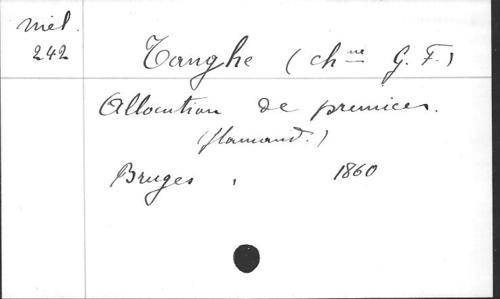 Miel.
242
Tanghe (chne G. F.)
Allocution de premices.
(flamand.)
Bruges, 1860